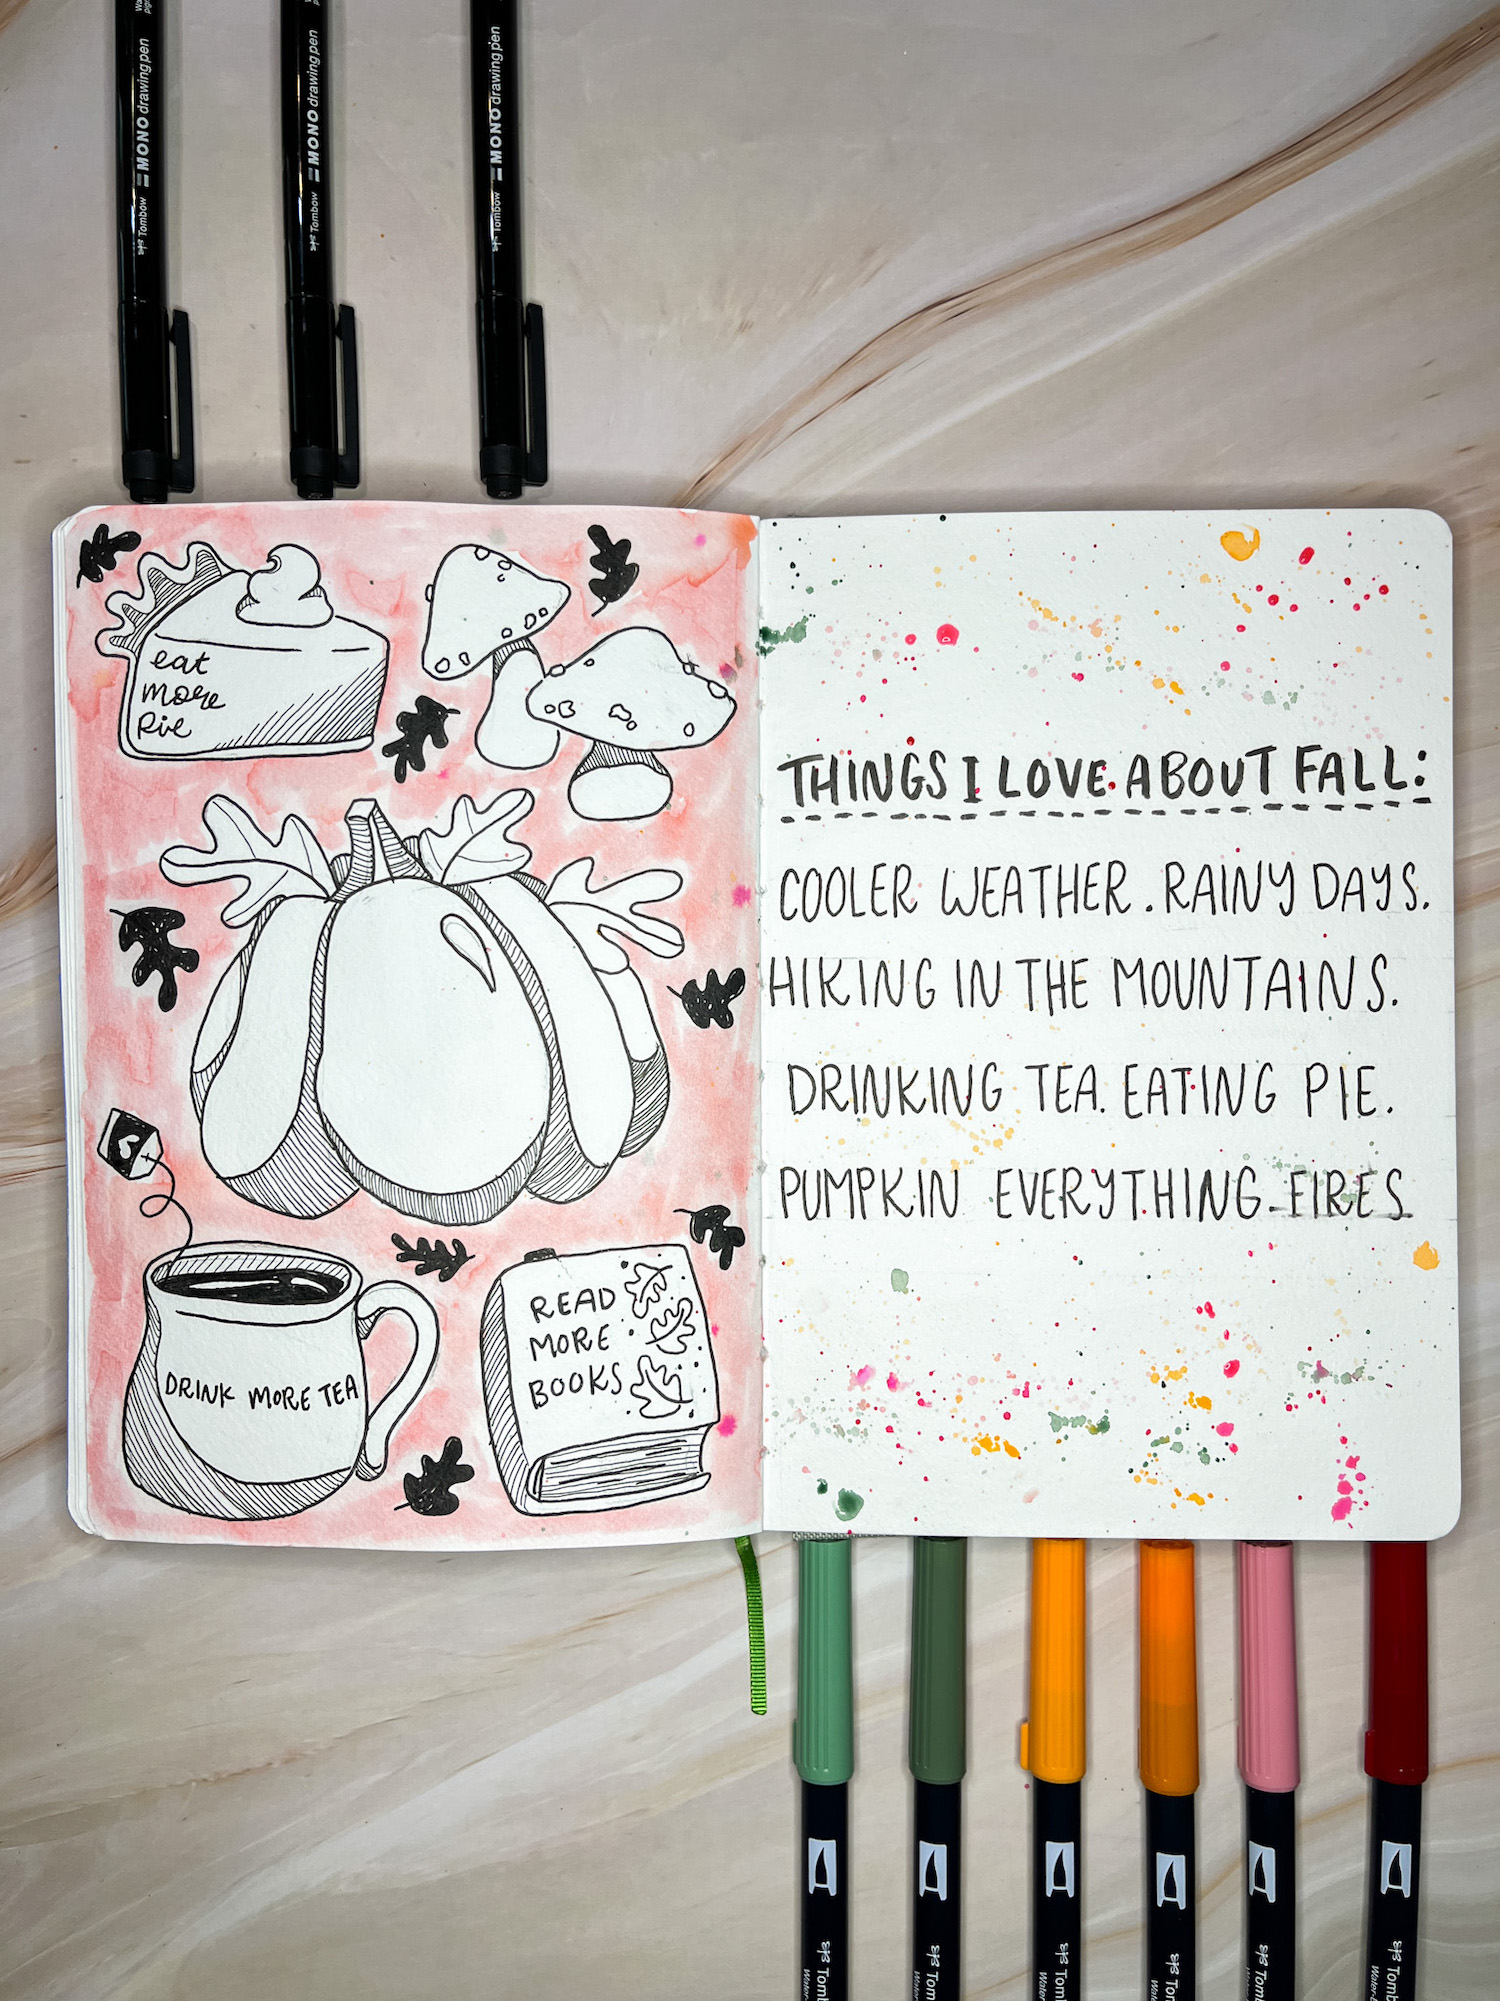 MONO drawing pen
Tombow
MONO drawing pen
Tombow
MONO drawing pen
Tombow
eat
more
Pie
DRINK MORE TEA
READ
MORE
BOOKS
THINGS I LOVE ABOUT FALL:
COOLER WEATHER. RAINY DAYS.
HIKING IN THE MOUNTAINS.
DRINKING TEA. EATING PIE.
PUMPKIN EVERYTHING. FIRES
Tomb
Tomb
Tomb
Tomb
Tomb
Tomb